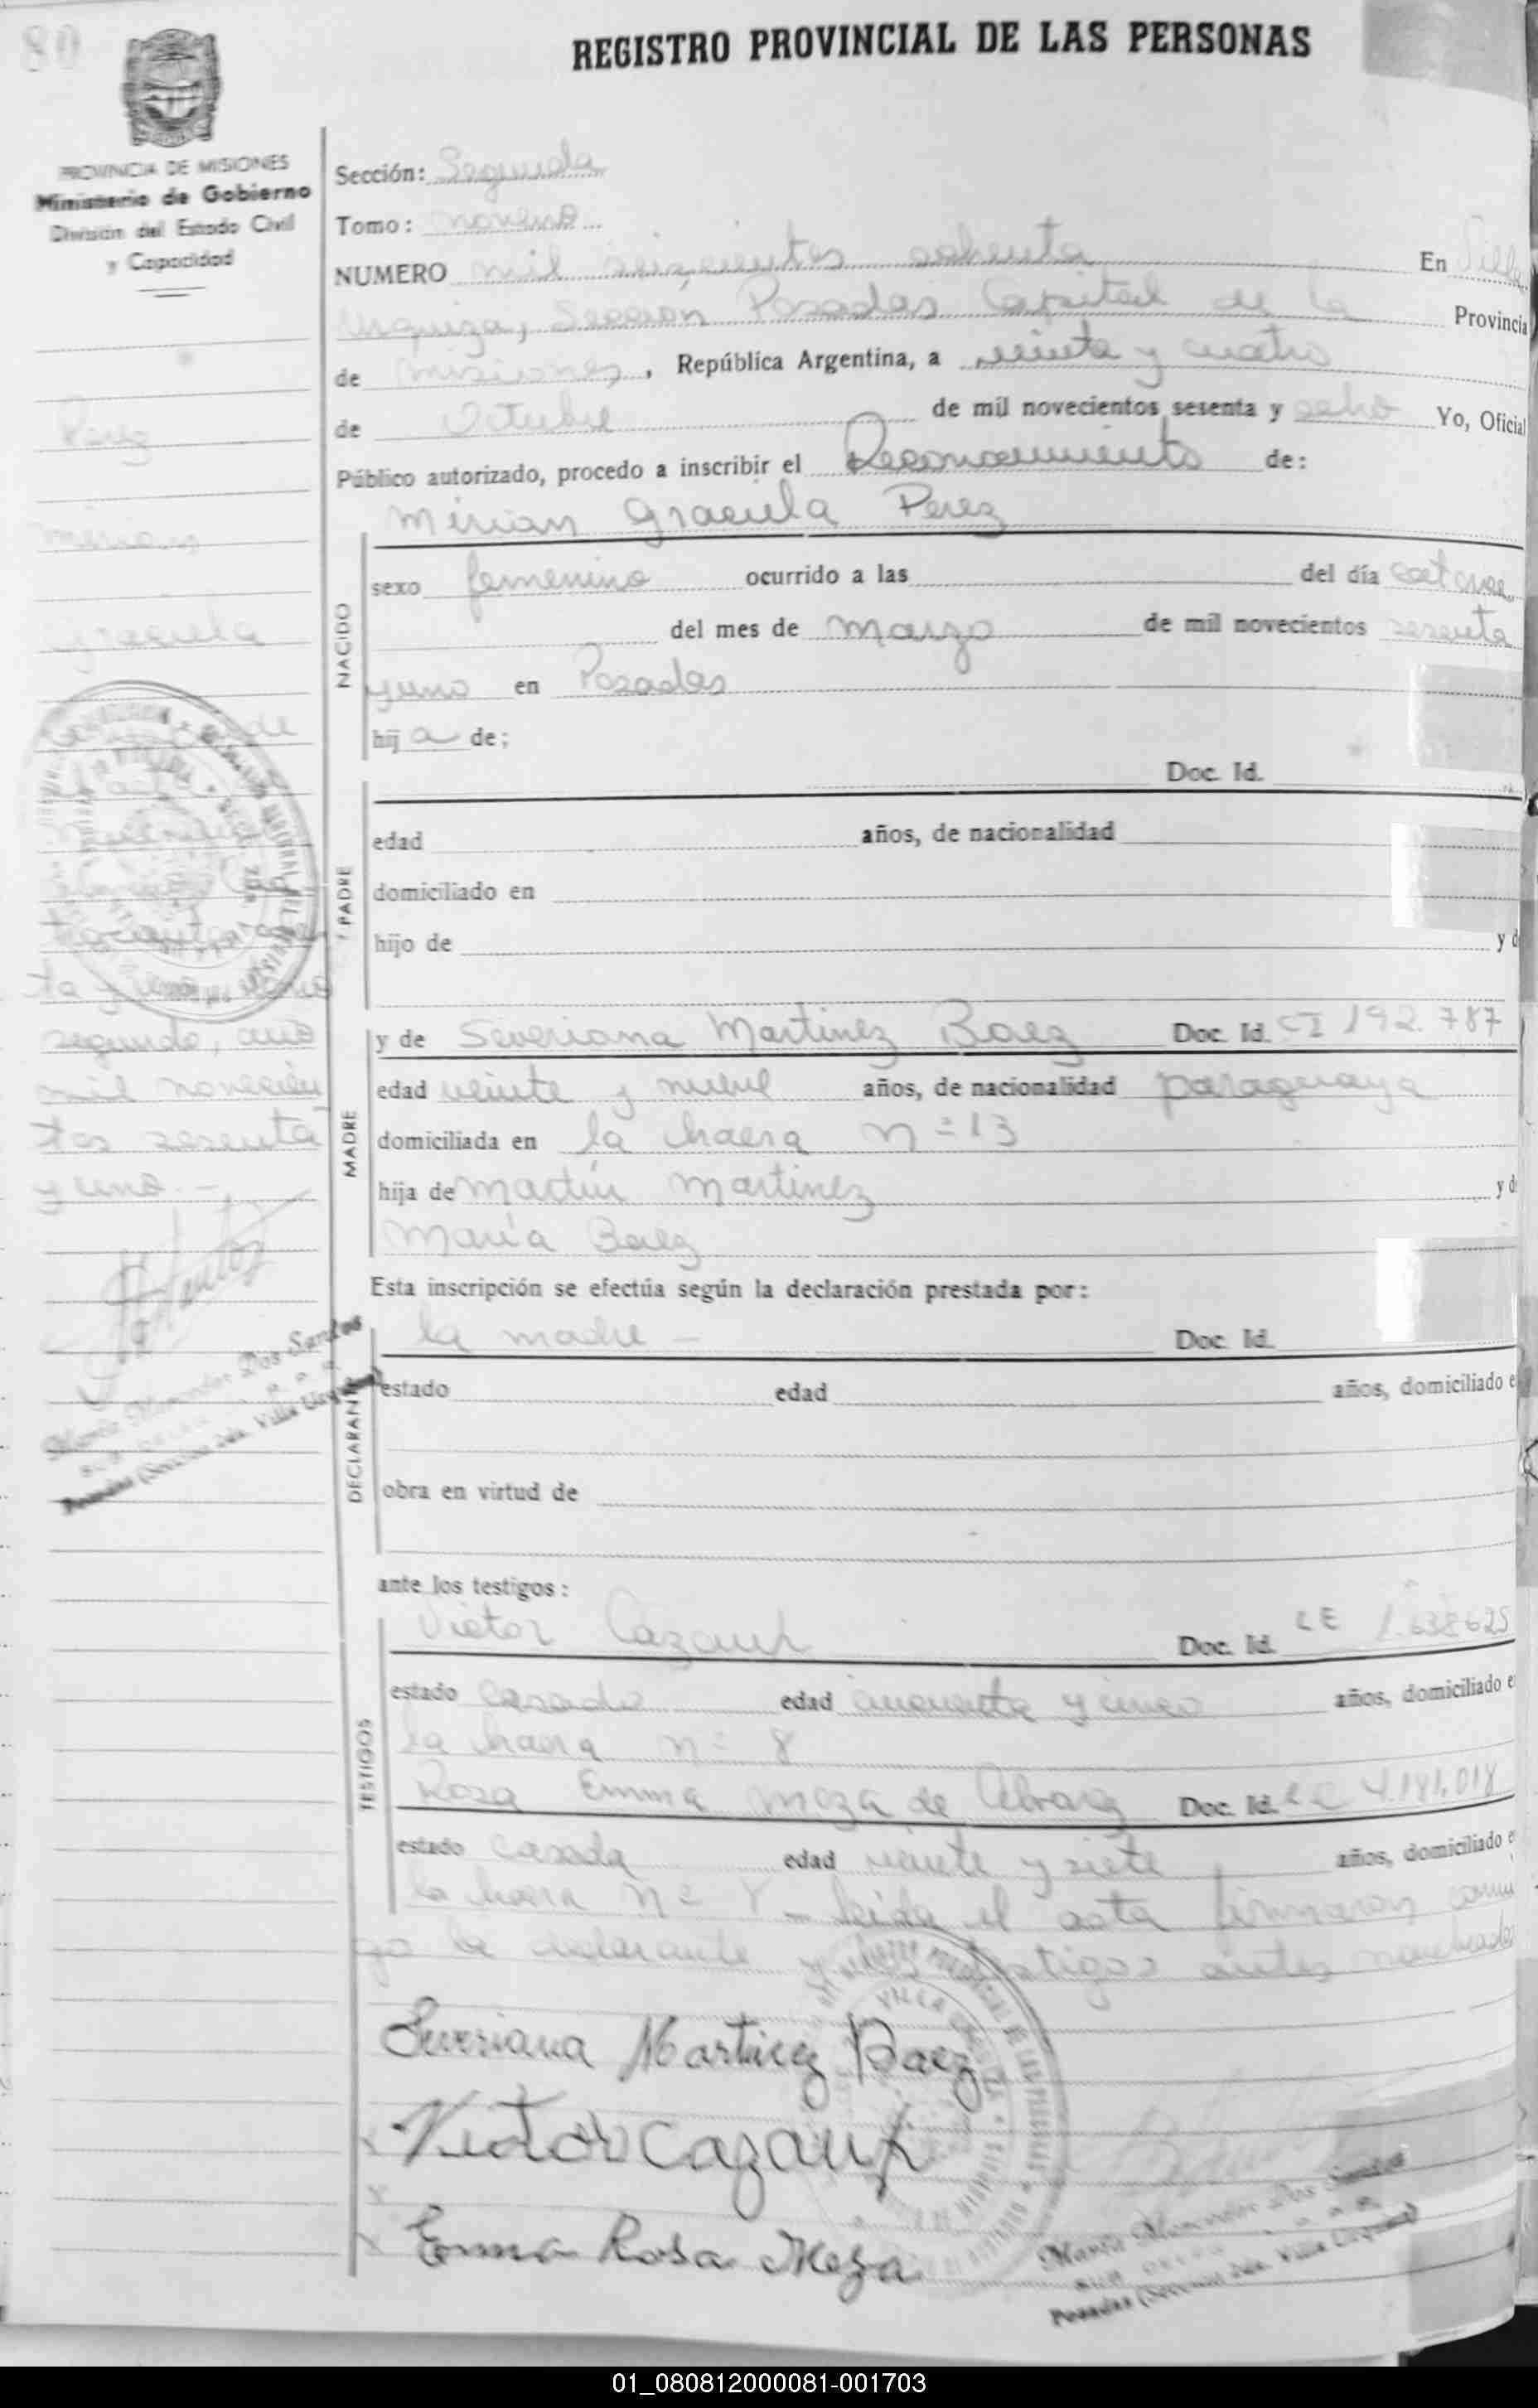 80
REGISTRO PROVINCIAL DE LAS PERSONAS
PROVINCIA DE MISIONES
Ministerio de Gobierno
División del Estado Civil
y Capacidad
Sección: Segunda
Tomo: noveno
NUMERO mil seiscientos ochenta En Villa
Urquiza, Sección Posadas Capital de la Provincia
de Misiones, República Argentina, a veinte y cuatro
de Octubre de mil novecientos sesenta y ocho Yo, Oficial
Público autorizado, procedo a inscribir el Reconocimiento de:
Mirian Graciela Perez
NACIDO
sexo femenino ocurrido a las del día catorce
del mes de Marzo de mil novecientos sesenta
y uno en Posadas
hija de;
PADRE
Doc. Id.
edad años, de nacionalidad
domiciliado en
hijo de y d
MADRE
y de Severiana Martinez Baez Doc. Id. CI 192.787
edad veinte y nueve años, de nacionalidad paraguaya
domiciliada en la chacra n= 13
hija de Martín Martinez y d
María Baez
Esta inscripción se efectúa según la declaración prestada por:
DECLARANTE
la madre — Doc. Id.
estado edad años, domiciliado e
obra en virtud de
ante los testigos:
TESTIGOS
Victor Cazaux Doc. Id. LE 1.638625
estado casado edad cincuenta y cinco años, domiciliado e
la chacra n= 8
Rosa Emma Meza de Doc. Id. LC 4.191.018
estado casada edad veinte y siete años, domiciliado e
la chacra n= leída el acta firmaron conmi
go la declarante y testigos antes nombrados
Severiana Martinez Baez
Victor Cazaux
Emma Rosa Meza
Perez
Mirian
Graciela
ta y
segundo, año
mil novecien
tos sesenta
y uno. —
Dos Santos
Posadas (Sección 2da. Villa Urquiza)
Dos Santos
Posadas (Sección 2da. Villa Urquiza)
01_080812000081-001703